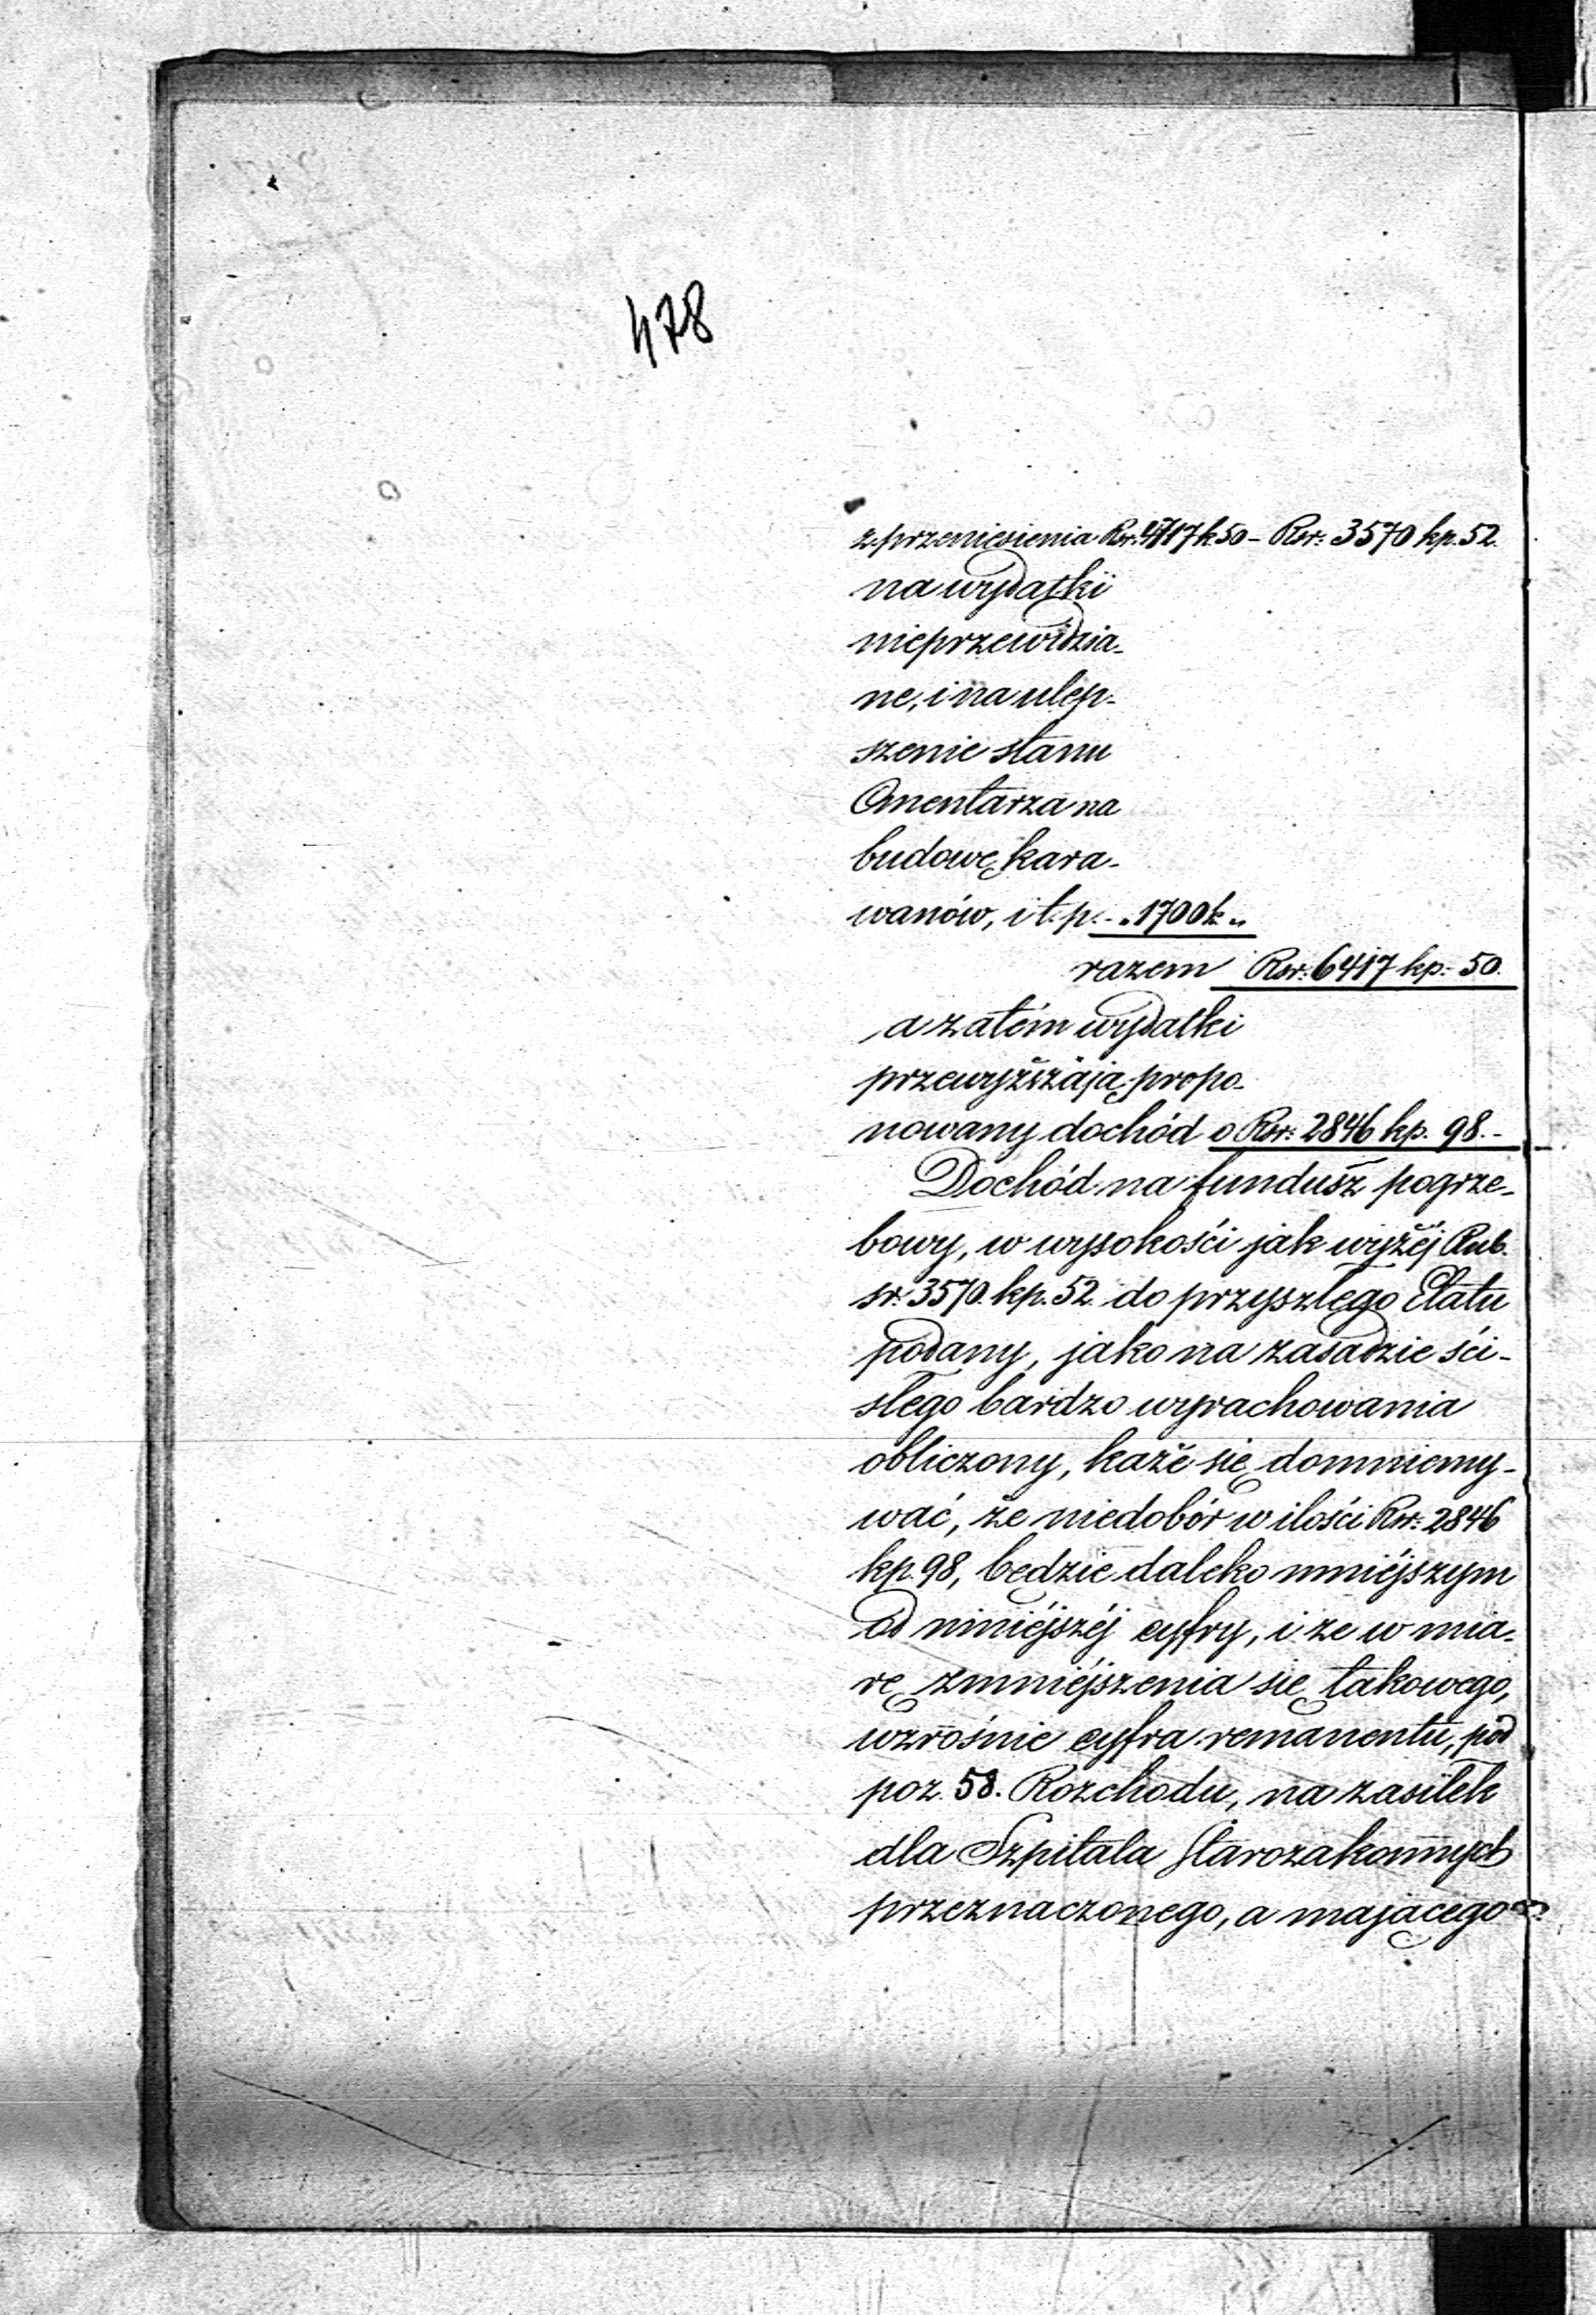 478
z przeniesienia Rsr. 4717 k. 50 – Rsr: 3570 kp. 52.
na wydatki
nieprzewidzia-
ne, i na ulep-
szenie stanu
Cmentarza na
budowę kara-
wanów, i t. p. - „1700 k „
razem Rsr: 6417 kp: 50.
a zatém wydatki
przewyższają propo-
nowany dochód o Rsr: 2846 kp. 98.-
Dochód na fundusz pogrze-
bowy, w wysokości jak wyżéj Rub.
sr: 3570. kp. 52. do przyszłego Etatu
podany, jako na zasadzie ści-
słego bardzo wyrachowania
obliczony, każe się domniemy-
wać, że niedobór w ilości Rsr: 2846
kp. 98, będzie daleko mniéjszym
od niniéjszéj cyfry, i że w mia-
rę zmniéjszenia się takowego,
wzrośnie cyfra remanentu, pod
poz. 58. Rozchodu, na zasiłek
dla Szpitala Starozakonnych
przeznaczonego, a mającego